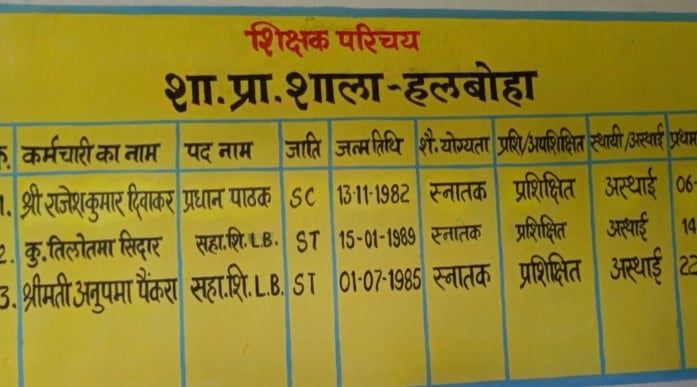 शिक्षक परिचय
शा.प्रा.शाला-हलबोहा
क. कर्मचारी का नाम पद नाम जाति जन्मतिथि शै.योग्यता प्रशि/अपशिक्षित स्थायी/अस्थाई प्रथम
1. श्री राजेशकुमार दिवाकर प्रधान पाठक SC 13-11-1982 स्नातक प्रशिक्षित अस्थाई 06-
2. कु.तिलोतमा सिदार सहा.शि.L.B. ST 15-01-1989 स्नातक प्रशिक्षित अस्थाई 14
3. श्रीमती अनुपमा पैंकरा सहा.शि.L.B. ST 01-07-1985 स्नातक प्रशिक्षित अस्थाई 22